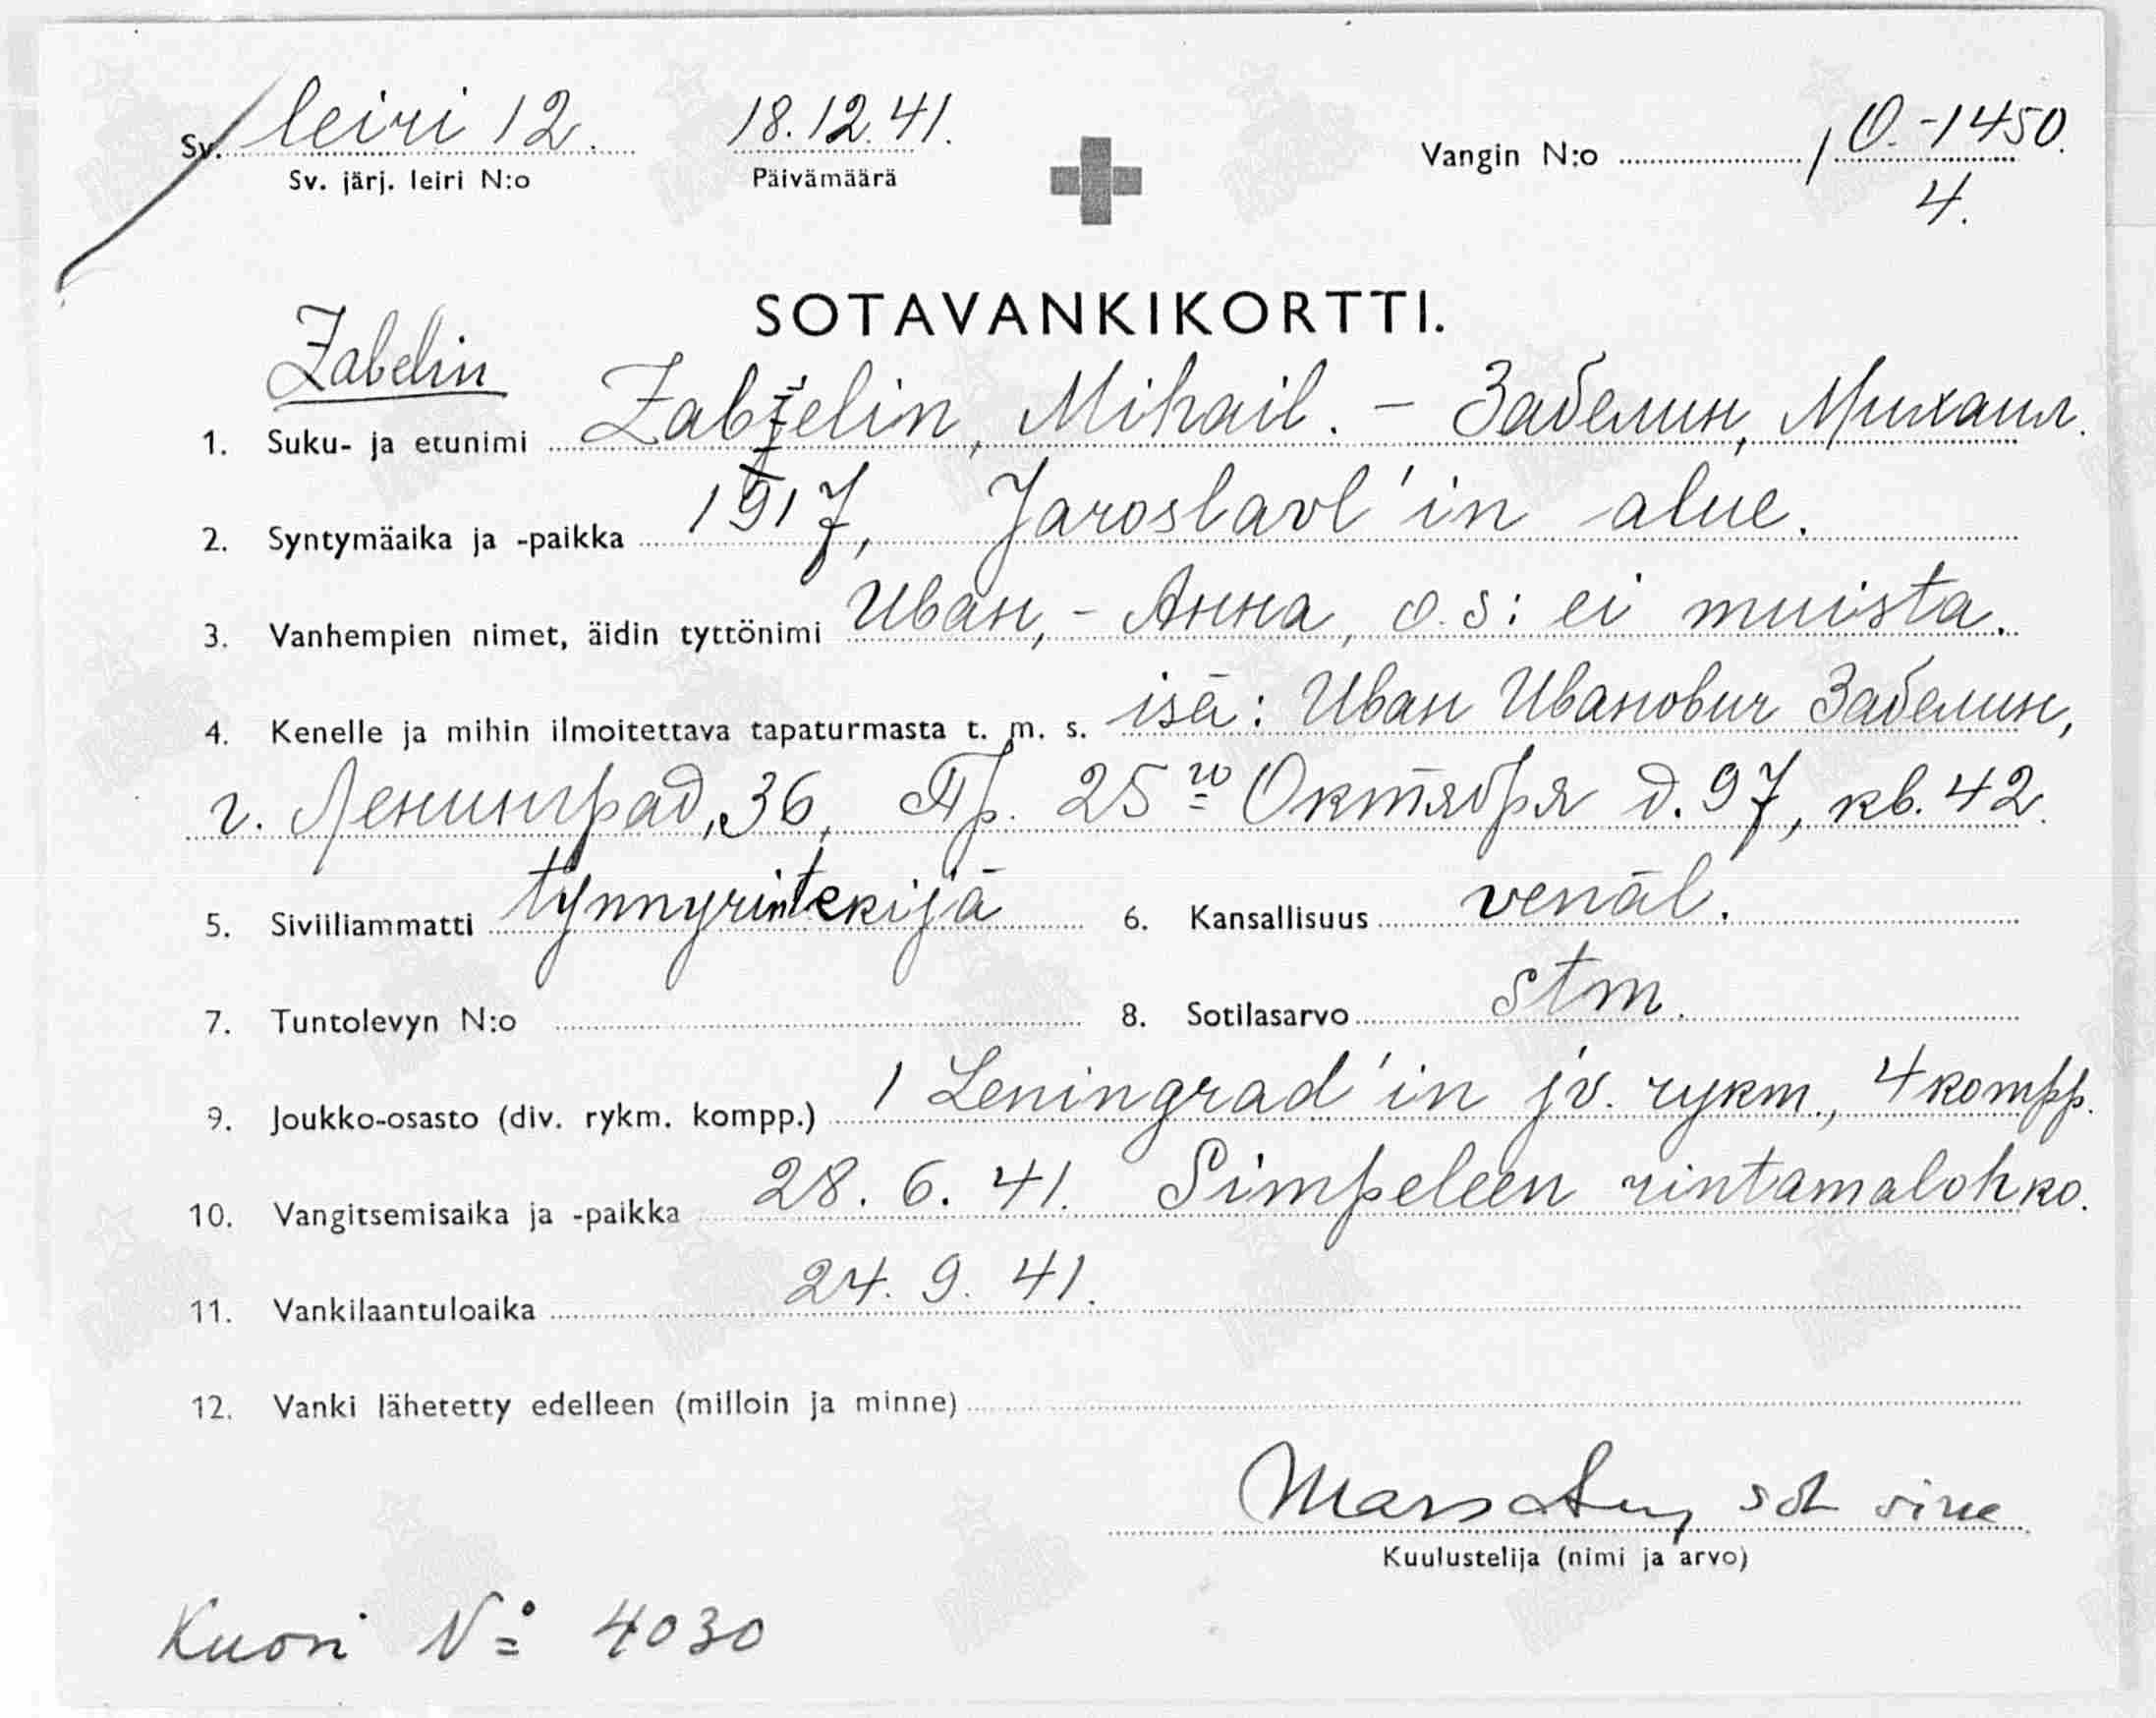 Sv. leiri 12. 18.12.41. Vangin N:o / O.-1450.
Sv. järj. leiri N:o Päivämäärä 4.
SOTAVANKIKORTTI.
Zabelin
1. Suku- ja etunimi Zabjelin, Mihail. - Забелин, Михаил.
2. Syntymäaika ja -paikka 1917, Jaroslavl'in alue.
3. Vanhempien nimet, äidin tyttönimi Иван, - Анна, o.s: ei muista.
4. Kenelle ja mihin ilmoitettava tapaturmasta t. m. s. isä: Иван Иванович Забелин,
г. Ленинград, 36, Пр. 25го Октября д. 97, кв. 42.
5. Siviiliammatti tynnyrintekijä 6. Kansallisuus venäl.
7. Tuntolevyn N:o 8. Sotilasarvo stm.
9. Joukko-osasto (div. rykm. kompp.) 1 Leningrad'in jv. rykm., 4 kompp.
10. Vangitsemisaika ja -paikka 28. 6. 41. Simpeleen rintamalohko.
11. Vankilaantuloaika 24. 9. 41.
12. Vanki lähetetty edelleen (milloin ja minne)
Kuulustelija (nimi ja arvo)
Kuori No 4030